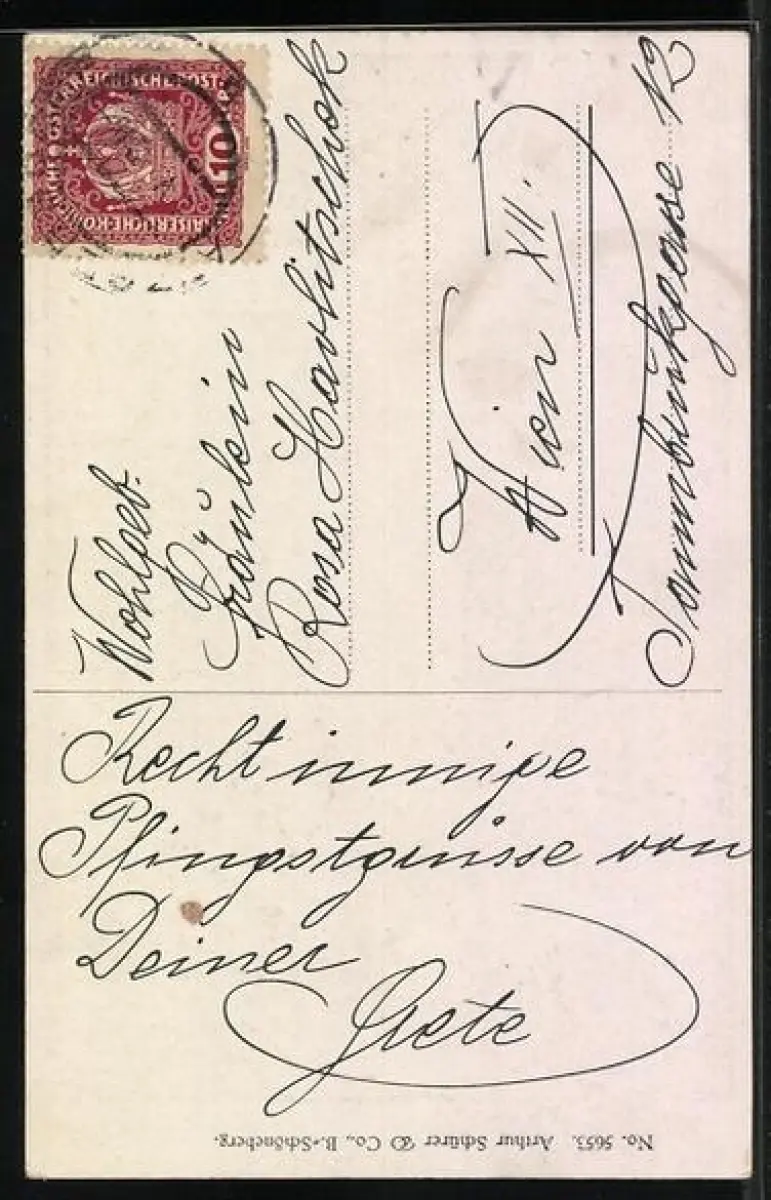 KAISERLICHE KÖNIGLICHE ÖSTERREICHISCHE POST
10
Wohlgeb.
Fräulein
Rosa Havlitschek
Wien XII.
12
Recht innige
Pfingstgrüsse von
Deiner
Grete
No. 5653. Arthur Schürer & Co., B.-Schöneberg.